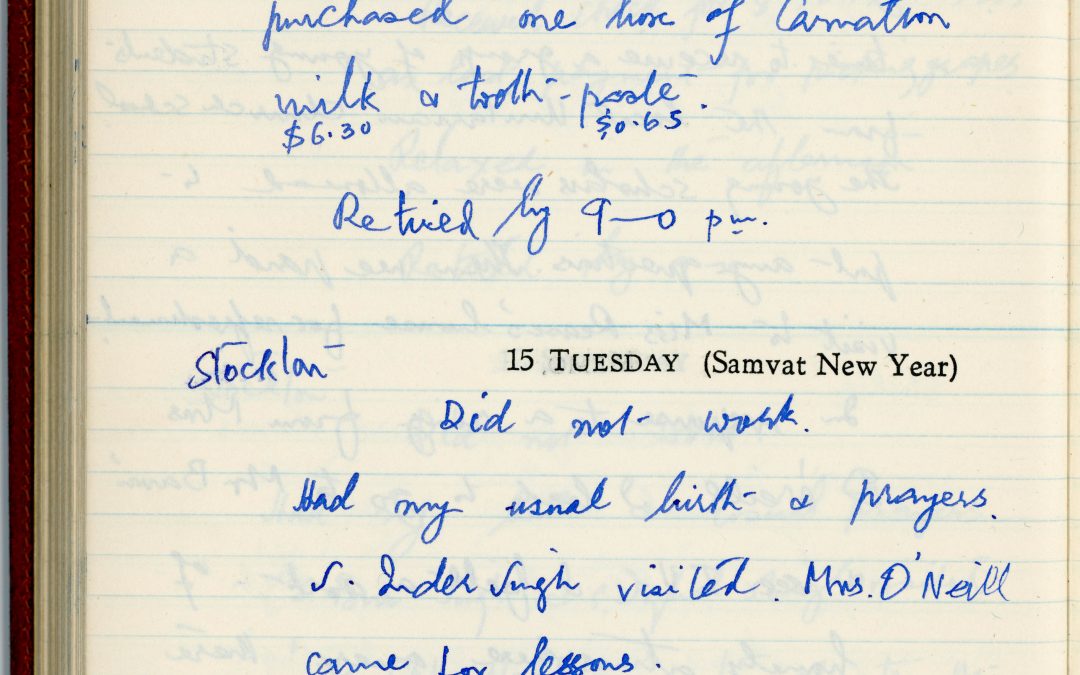 purchased one box of Carnation
milk & tooth-paste.
$6.30 $0.65
Retired by 9–0 pm.
Stockton 15 TUESDAY (Samvat New Year)
Did not work.
Had my usual birth & prayers.
S. Inder Singh visited. Mrs. O'Neill
came for lessons.